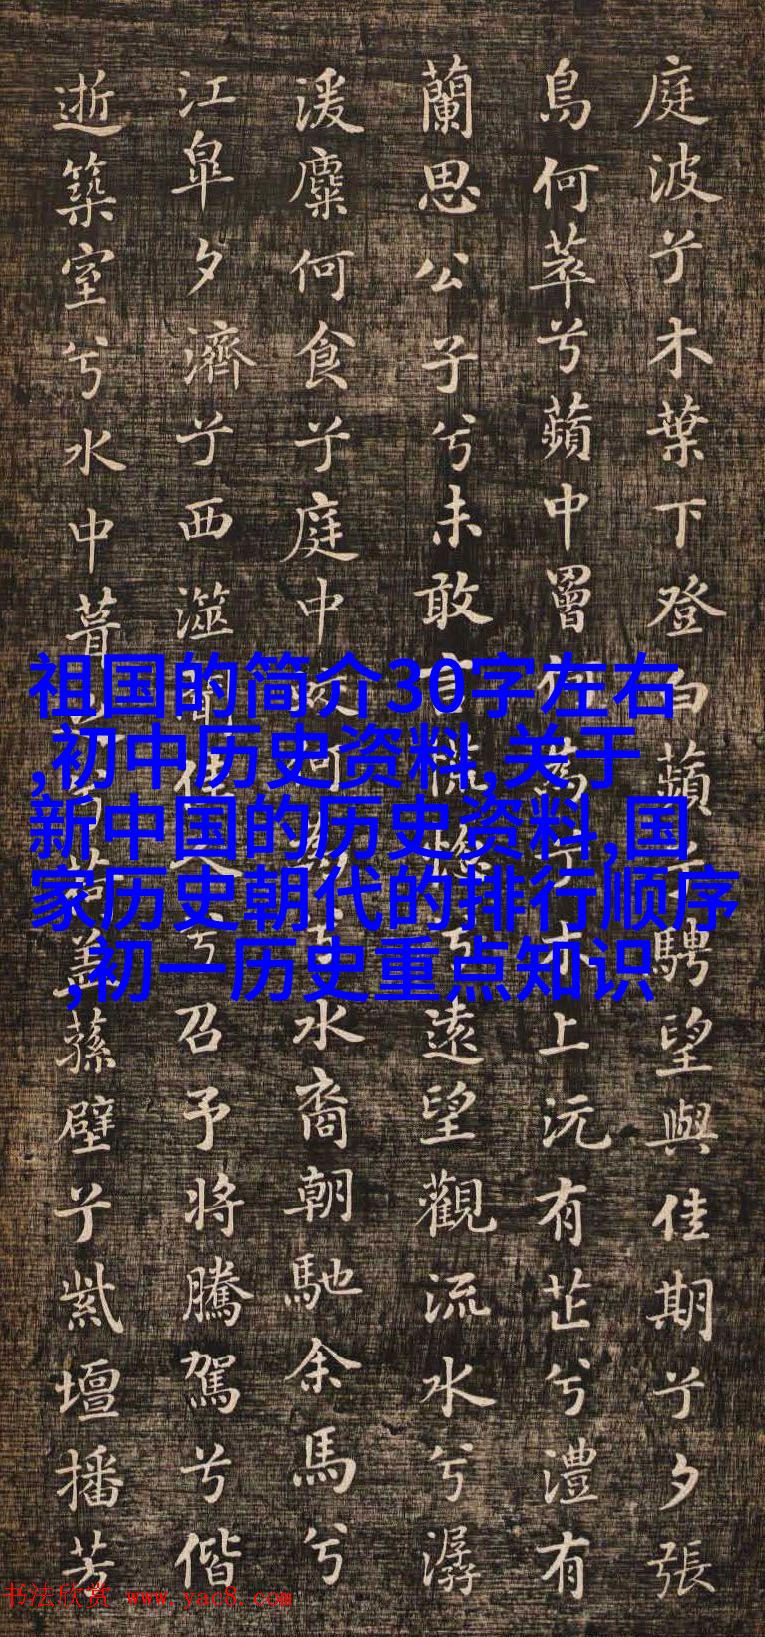 庭波兮木葉下登白蘋兮騁望與佳期兮夕張
鳥何萃兮蘋中罾何為兮木上沅有芷兮澧有
蘭思公子兮未敢言兮遠望觀流水兮潺
湲麋何食兮庭中何為兮水裔朝馳余馬兮
江皐夕濟兮西澨聞佳人兮召予將騰駕兮偕
逝築室兮水中葺之荷蓋蓀壁兮紫壇播芳
祖国的简介30字左右
,初中历史资料,关于
新中国的历史资料,国
家历史朝代的排行顺序
,初一历史重点知识
书法欣赏 www.yac8.com